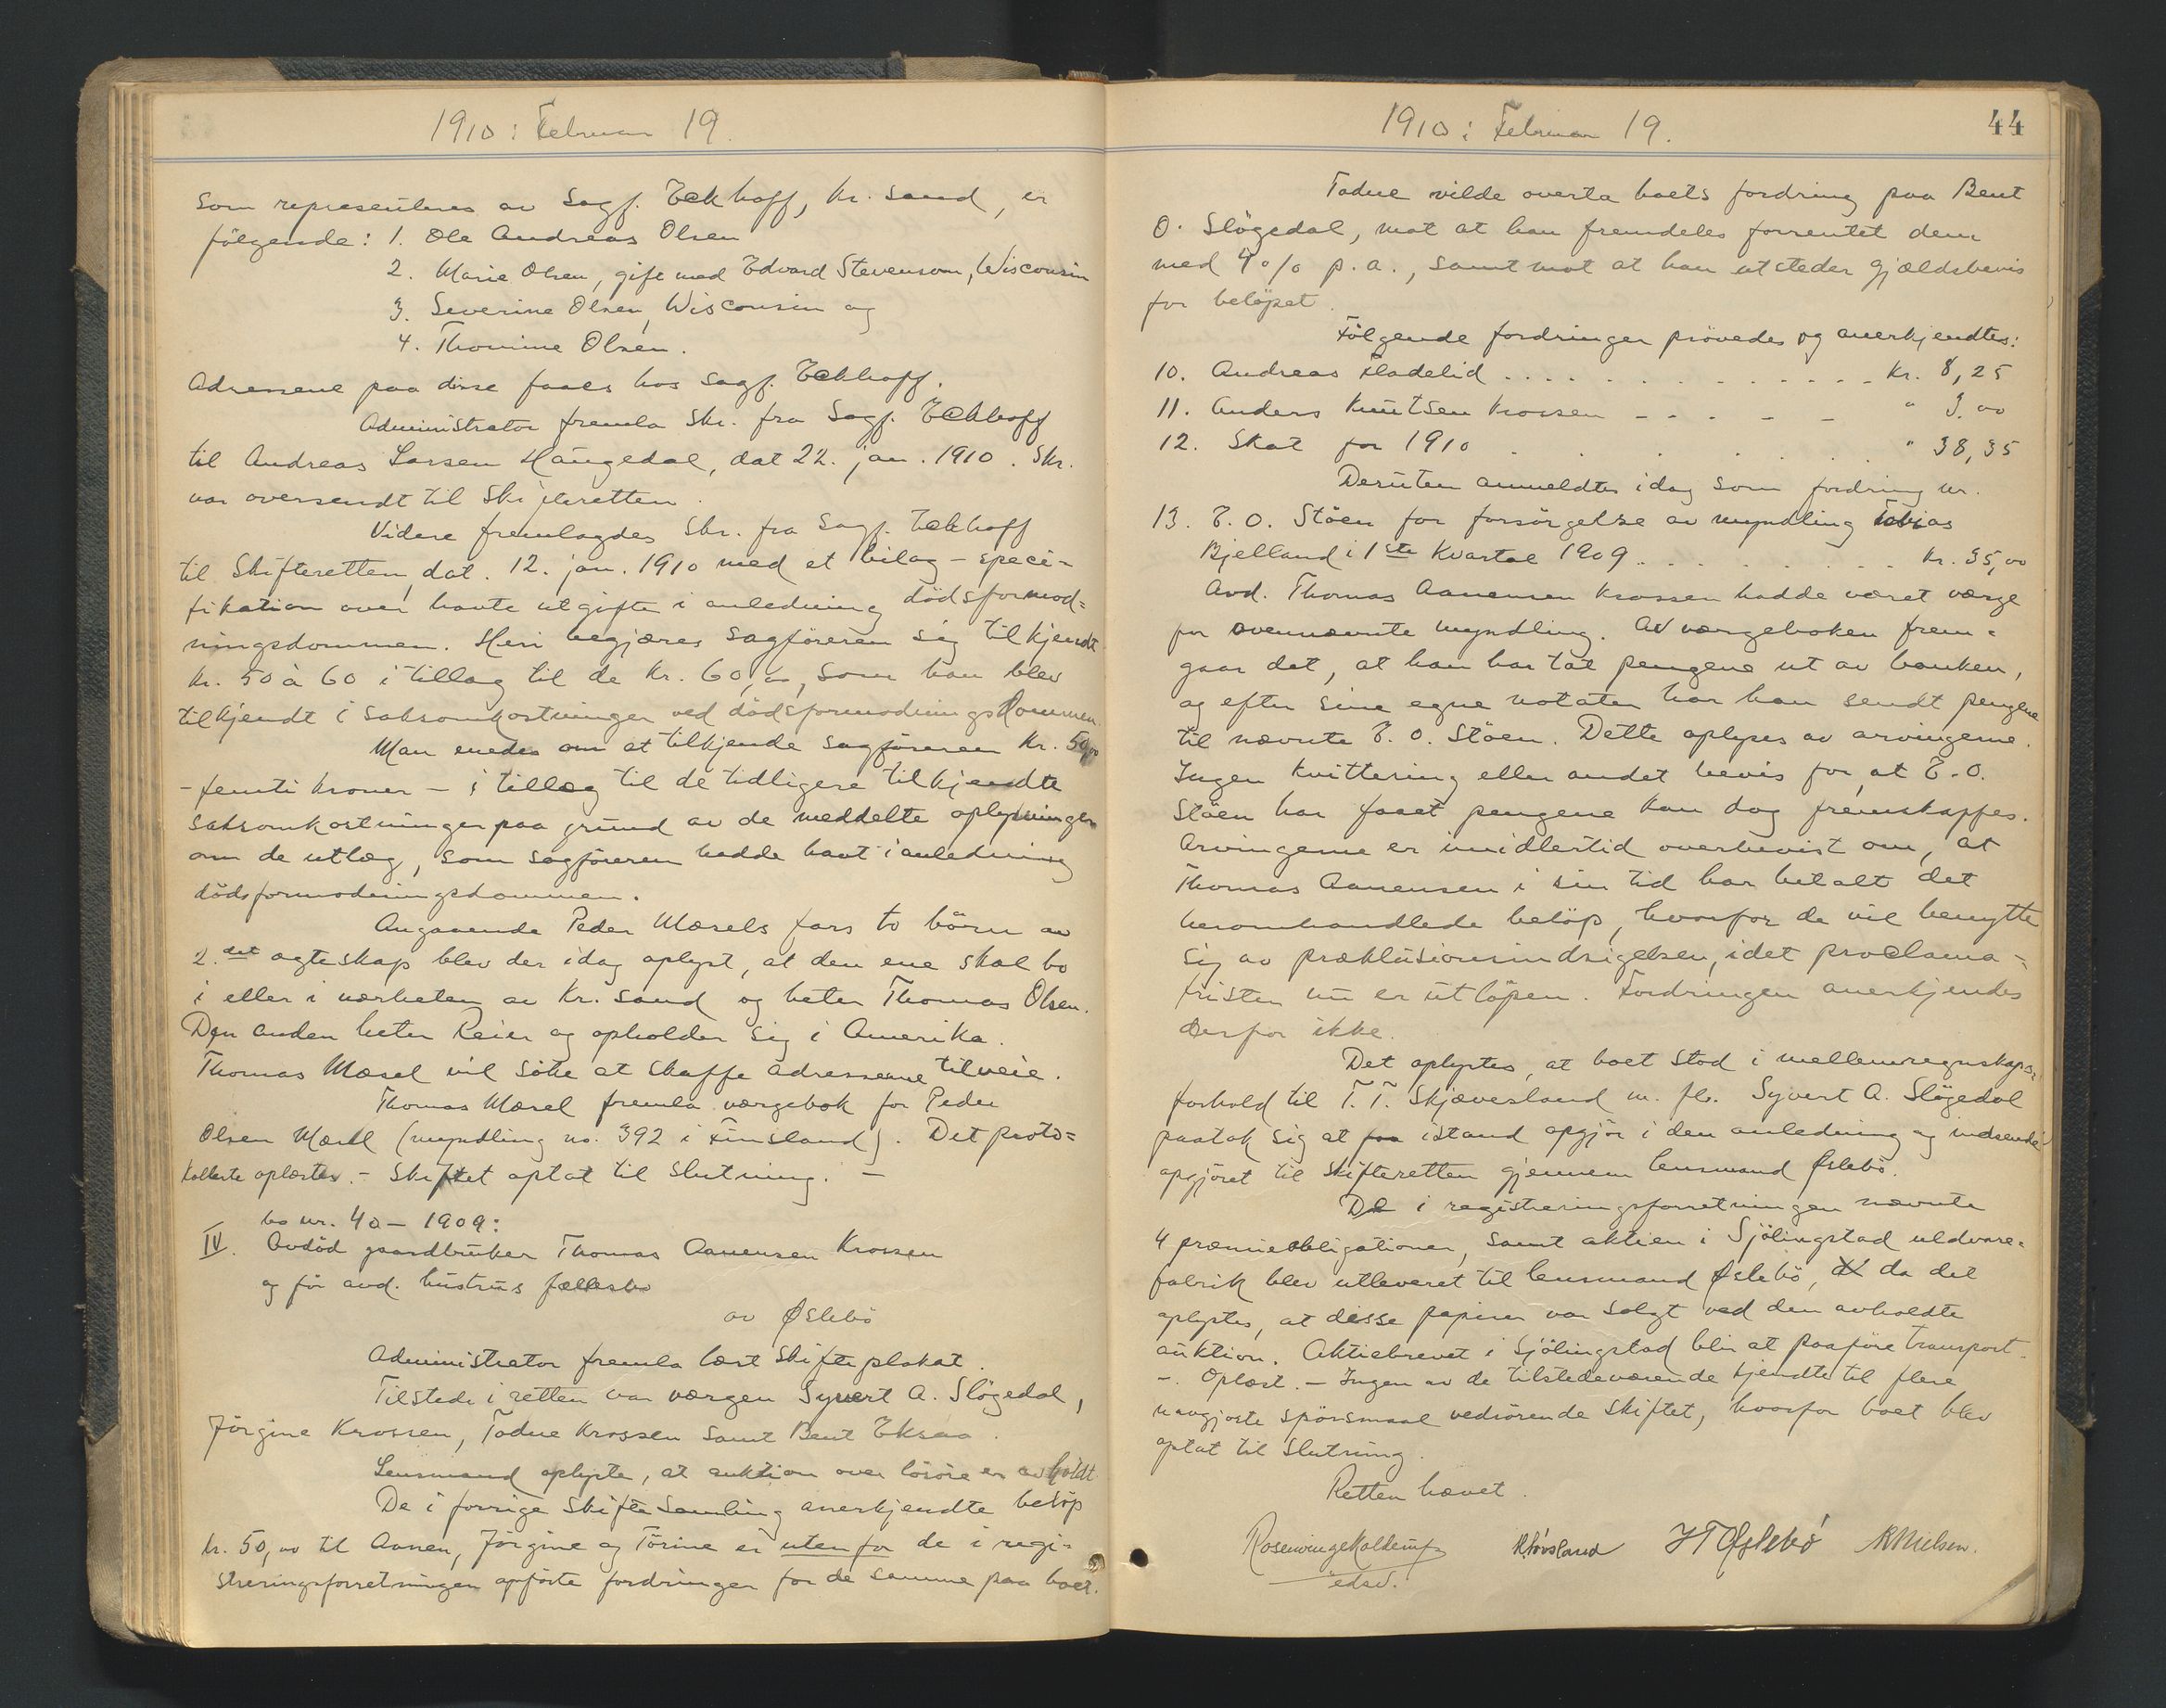 1910: Februar 19.
som representeres av Sagf. Eckhoff, Kr.sand, er
følgende: 1. Ole Andreas Olsen
2. Marie Olsen, gift med Edvard Stevenson, Wisconsin
3. Severine Olsen, Wisconsin og
4. Thomine Olsen.
Adressene paa disse faaes hos Sagf. Eckhoff.
Administrator fremla Skr. fra Sagf. Eckhoff
til Andreas Larsen Haugedal, dat 22. jan. 1910. Skr.
var oversendt til Skifteretten.
Videre fremlagdes Skr. fra Sagf. Eckhoff
til Skifteretten, dat. 12. jan. 1910 med et bilag – speci=
fikation over havte utgifter i anledning dödsformod=
ningsdommen. Heri begjæres sagföreren sig tilkjendt
kr. 50 à 60 i tillæg til de kr. 60,00, som han blev
tilkjendt i saksomkostninger ved dödsformodningsdommen.
Man enedes om at tilkjende sagföreren kr. 50,00
– femti kroner – i tillæg til de tidligere tilkjendte
saksomkostninger paa grund av de meddelte oplysninger
om de utlæg, som sagföreren hadde havt i anledning
dödsformodningsdommen.
Angaaende Peder Mæsels fars to börn av
2.det ægteskap blev der idag oplyst, at den ene skal bo
i eller i nærheten av Kr.sand og heter Thomas Olsen.
Den anden heter Reier og opholder sig i Amerika.
Thomas Mæsel vil söke at skaffe adresserne tilveie.
Thomas Mæsel fremla værgebok for Peder
Olsen Mæsel (myndling no. 392 i Finsland). Det proto=
kollerte oplæstes. – Skiftet optat til slutning. –
bo nr. 40 – 1909:
IV. Avdöd gaardbruker Thomas Aanensen Krossen
og för avd. hustrus fællesbo
av Øslebö
Administrator fremla læst skifteplakat.
Tilstede i retten var værgen Syvert A. Slögedal,
Jörgine Krossen, Todne Krossen samt Bent Eksaa.
Lensmand oplyste, at auktion over lösöre er avholdt
De i forrige Skiftesamling anerkjendte belöp
kr. 50,00 til Aanen, Jörgine og Törine er utenfor de i regi=
streringsforretningen opförte fordringer for de samme paa boet.
1910: Februar 19.
44
Todne vilde overta boets fordring paa Bent
O. Slögedal, mot at han fremdeles forrentet dem
med 4% p.a., samt mot at han utsteder gjældsbevis
for belöpet.
Fölgende fordringer prövedes og anerkjendtes:
10. Andreas Fladelid . . . . . . . . . . . . . . . kr. 8,25
11. Anders Knutsen Krossen - - - - - " 3,00
12. Skat for 1910 . . . . . . . " 38,35
Desuten anmeldtes idag som fordring nr.
13. E. O. Stöen for forsörgelse av myndling Tobias
Bjelland i 1ste Kvartal 1909 . . . . . . . . kr. 35,00
Avd. Thomas Aanensen Krossen hadde været værge
for ovennævnte myndling. Av værgeboken frem=
gaar det, at han har tat pengene ut av banken,
og efter sine egne notater har han sendt pengene
til nævnte E. O. Stöen. Dette oplyses av arvingerne.
Ingen kvittering eller andet bevis for, at E. O.
Stöen har faaet pengene kan dog fremskaffes.
Arvingerne er imidlertid overbevist om, at
Thomas Aanensen i sin tid har betalt det
heromhandlede belöp, hvorfor de vil benytte
sig av præklusionsindsigelsen, idet proclama=
fristen nu er utlöpen. Fordringen anerkjendes
derfor ikke.
Det oplystes, at boet stod i mellemregnskaps=
forhold til T. T. Skjævesland m. fl. Syvert A. Slögedal
paatok sig at faa istand opgjör i den anledning og indsende
opgjöret til skifteretten gjennem lensmand Øslebö.
De i registreringsforretningen nævnte
4 præmieobligationer, samt aktien i Sjölingstad uldvare=
fabrik blev utleveret til lensmand Øslebö, da det
oplystes, at disse papirer var solgt ved den avholdte
auktion. Aktiebrevet i Sjölingstad blir at paaföre transport.
–. Oplæst. – Ingen av de tilstedeværende kjendte til flere
uavgjorte spörsmaal vedrörende skiftet, hvorfor boet blev
optat til slutning.
Retten hævet.
edsv. JTØslebø RNielsen.